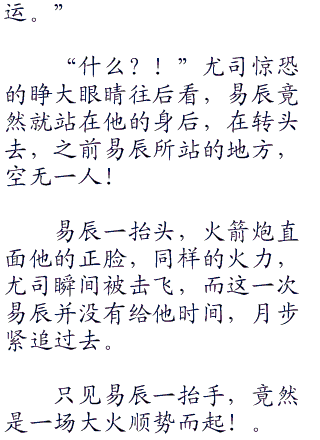 运。”
“什么？！”尤司惊恐
的睁大眼睛往后看，易辰竟
然就站在他的身后，在转头
去，之前易辰所站的地方，
空无一人！
易辰一抬头，火箭炮直
面他的正脸，同样的火力，
尤司瞬间被击飞，而这一次
易辰并没有给他时间，月步
紧追过去。
只见易辰一抬手，竟然
是一场大火顺势而起！。